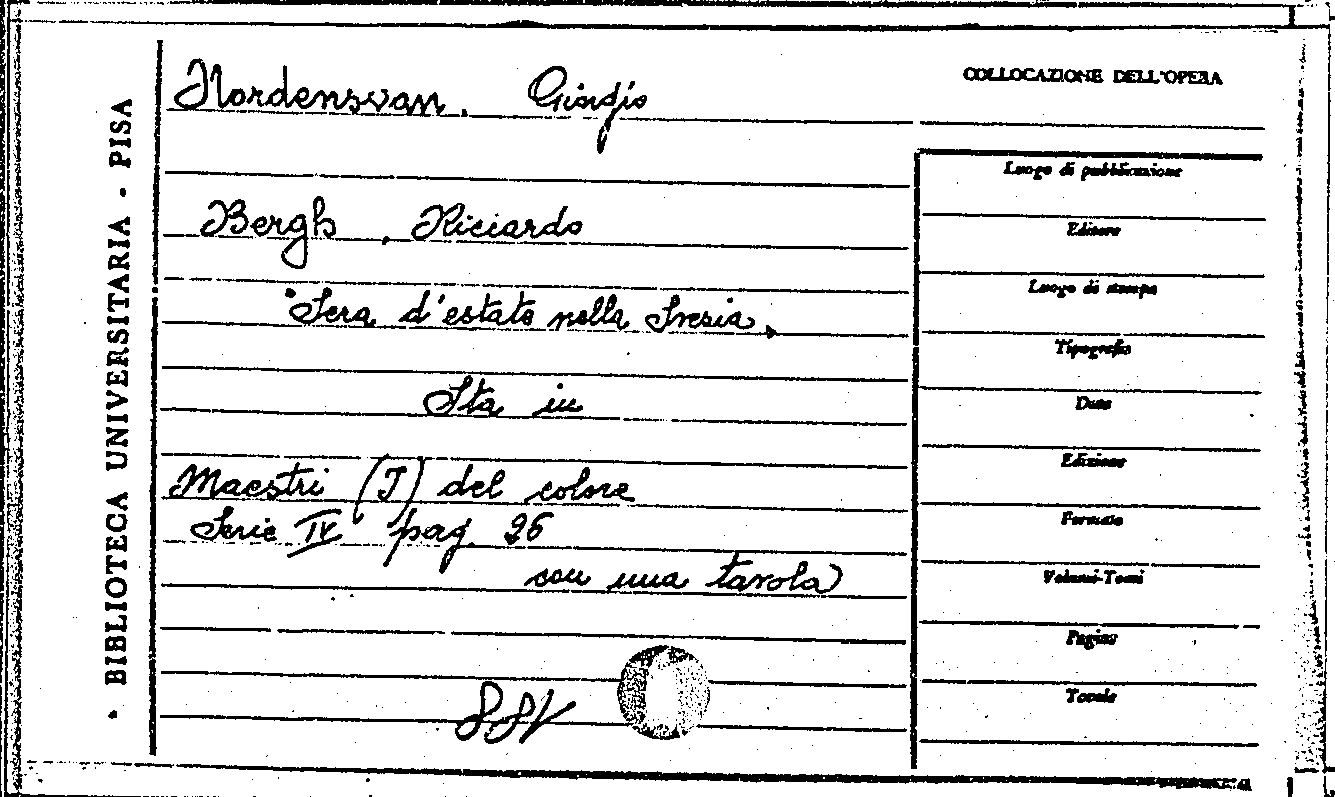 Nordensvan. Giorgio
COLLOCAZIONE DELL'OPERA
BIBLIOTECA UNIVERSITARIA - PISA
Bergh, Riciardo
"Sera d'estate nella Svezia"
Sta in
Maestri (I) del colore
Serie IV pag. 26
con una tavola)
Luogo di pubblicazione
Editore
Luogo di stampa
Tipografo
Data
Edizione
Formato
Volumi-Tomi
Pagine
Tavole